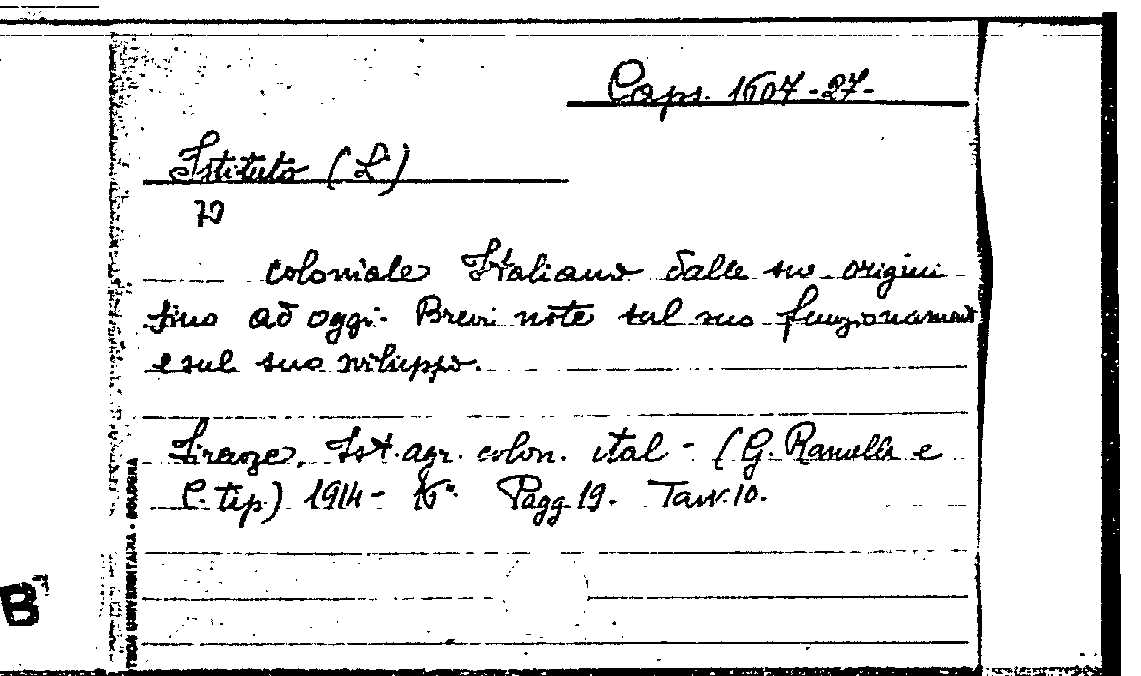 Caps. 1607-27-
Istituto (L')
70
coloniale Italiano dalle sue origini
fino ad oggi. Brevi note sul suo funzionamento
e sul suo sviluppo.
Firenze, Ist. agr. colon. ital - (G. Ramella e
C. tip.) 1914 - 16°. Pagg. 19. Tavv. 10.
TECA UNIVERSITARIA - BOLOGNA
B